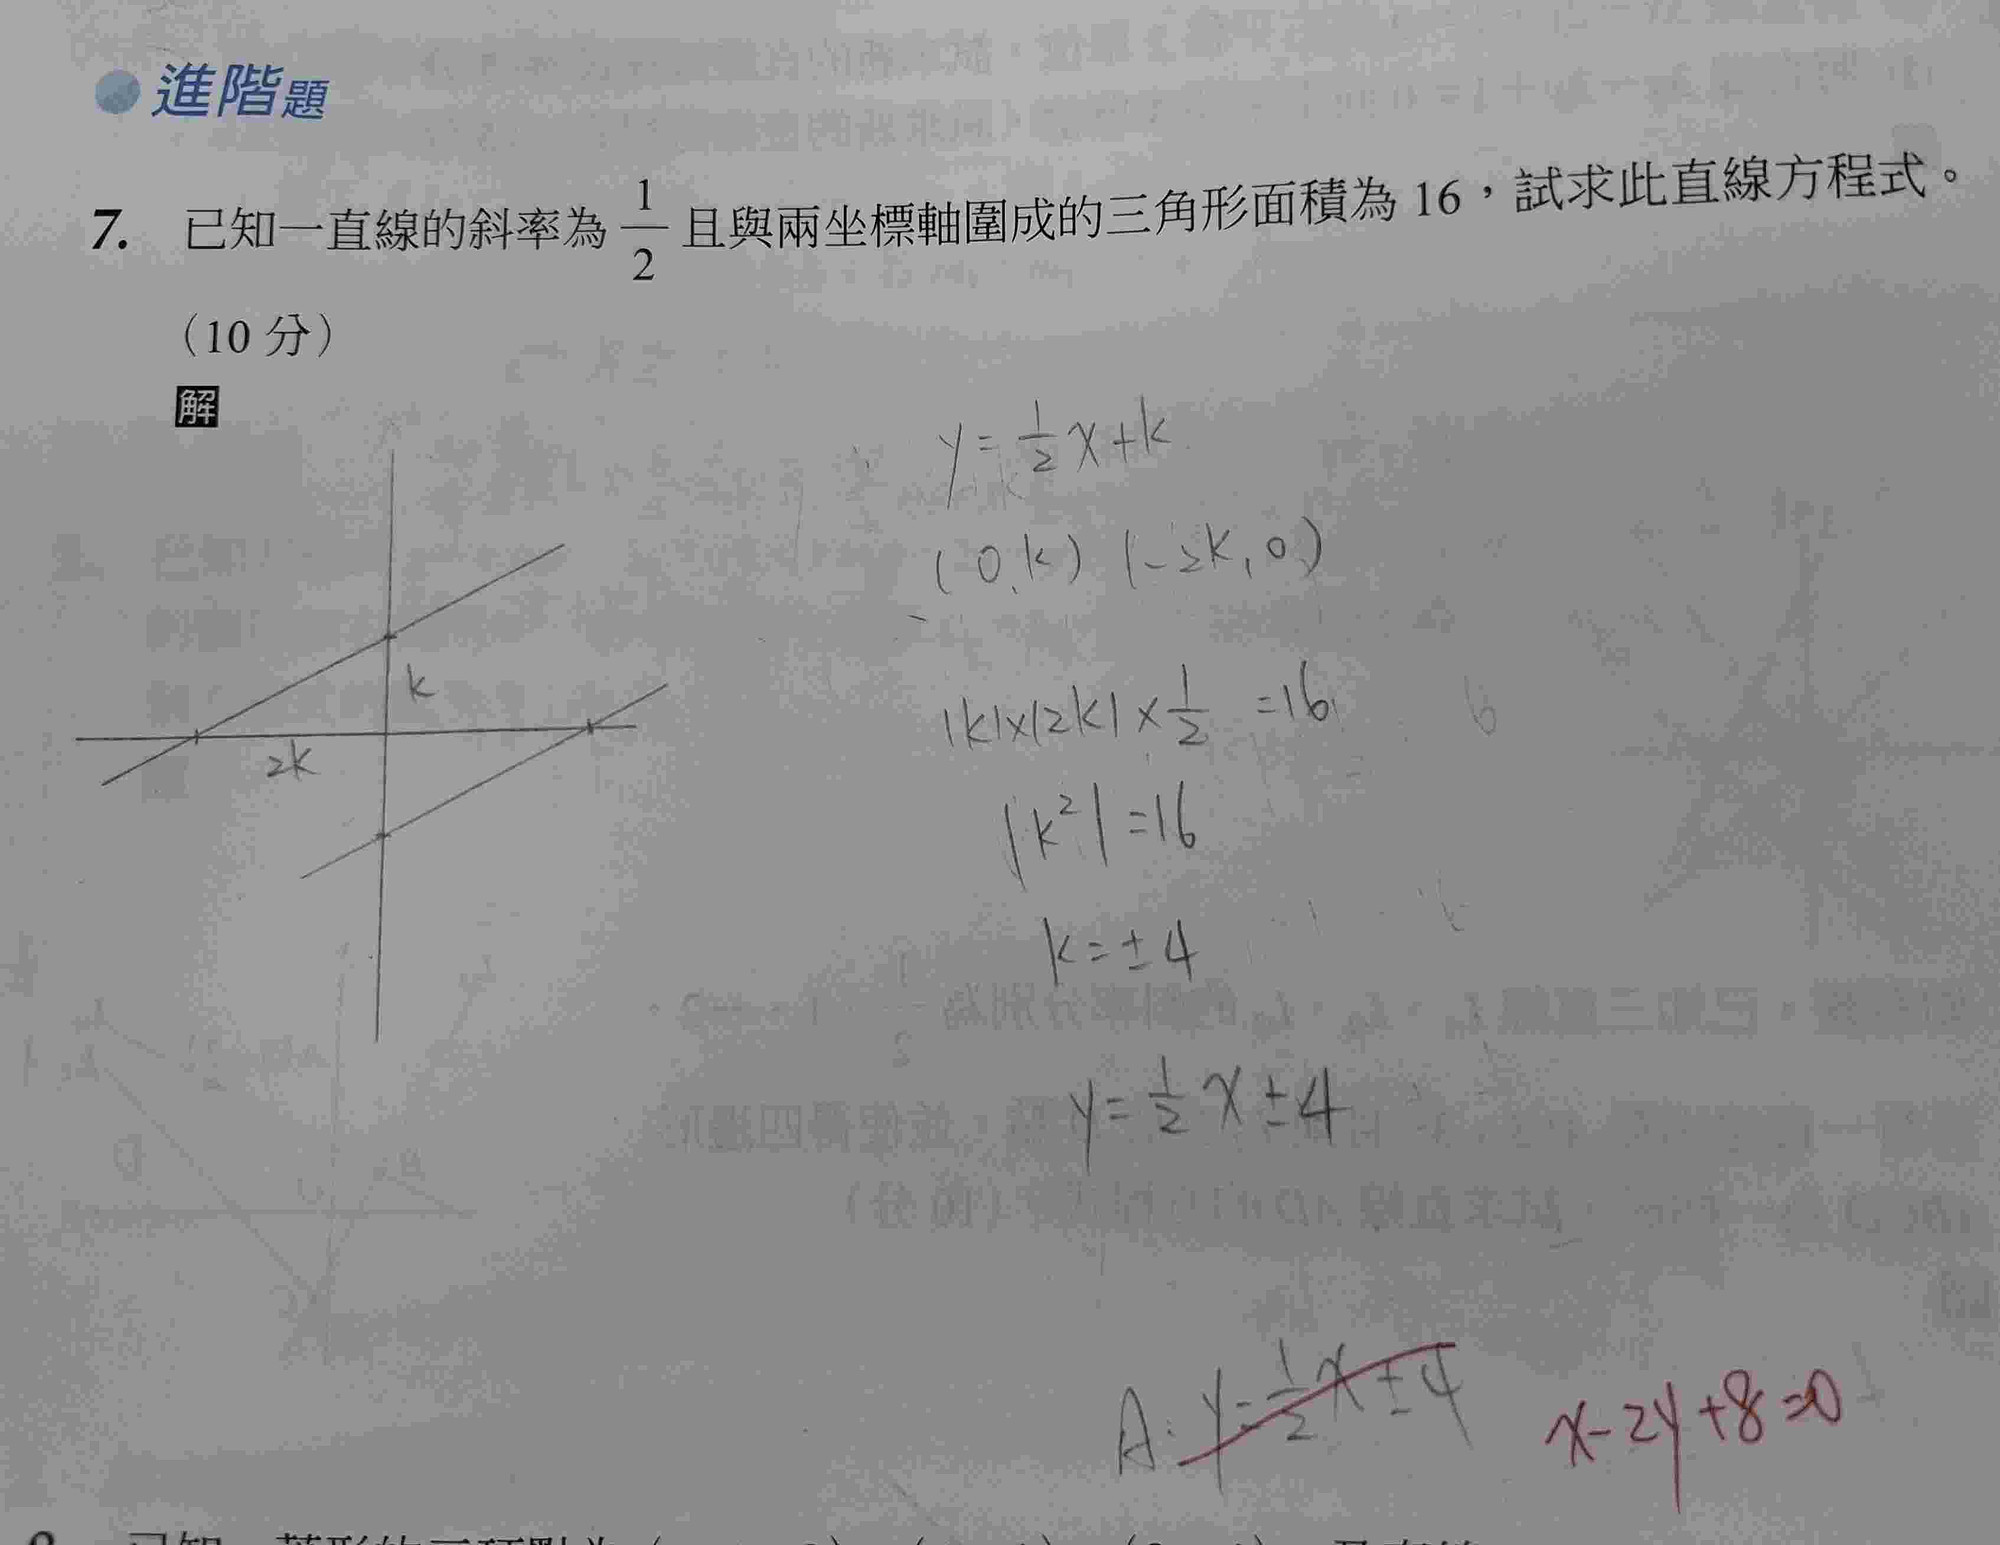 進階題
7. 已知一直線的斜率為 1/2 且與兩坐標軸圍成的三角形面積為 16，試求此直線方程式。
（10 分）
解
y = 1/2 x + k
(0, k) (-2k, 0)
k
2k
|k|×|2k|×1/2 = 16
|k²| = 16
k = ±4
y = 1/2 x ± 4
A: y = 1/2 x ± 4 x - 2y + 8 = 0